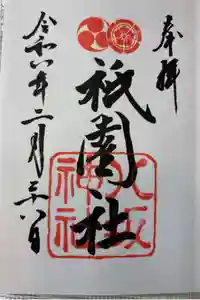 奉拝
祇園社
八坂
神社
令和六年二月二十八日